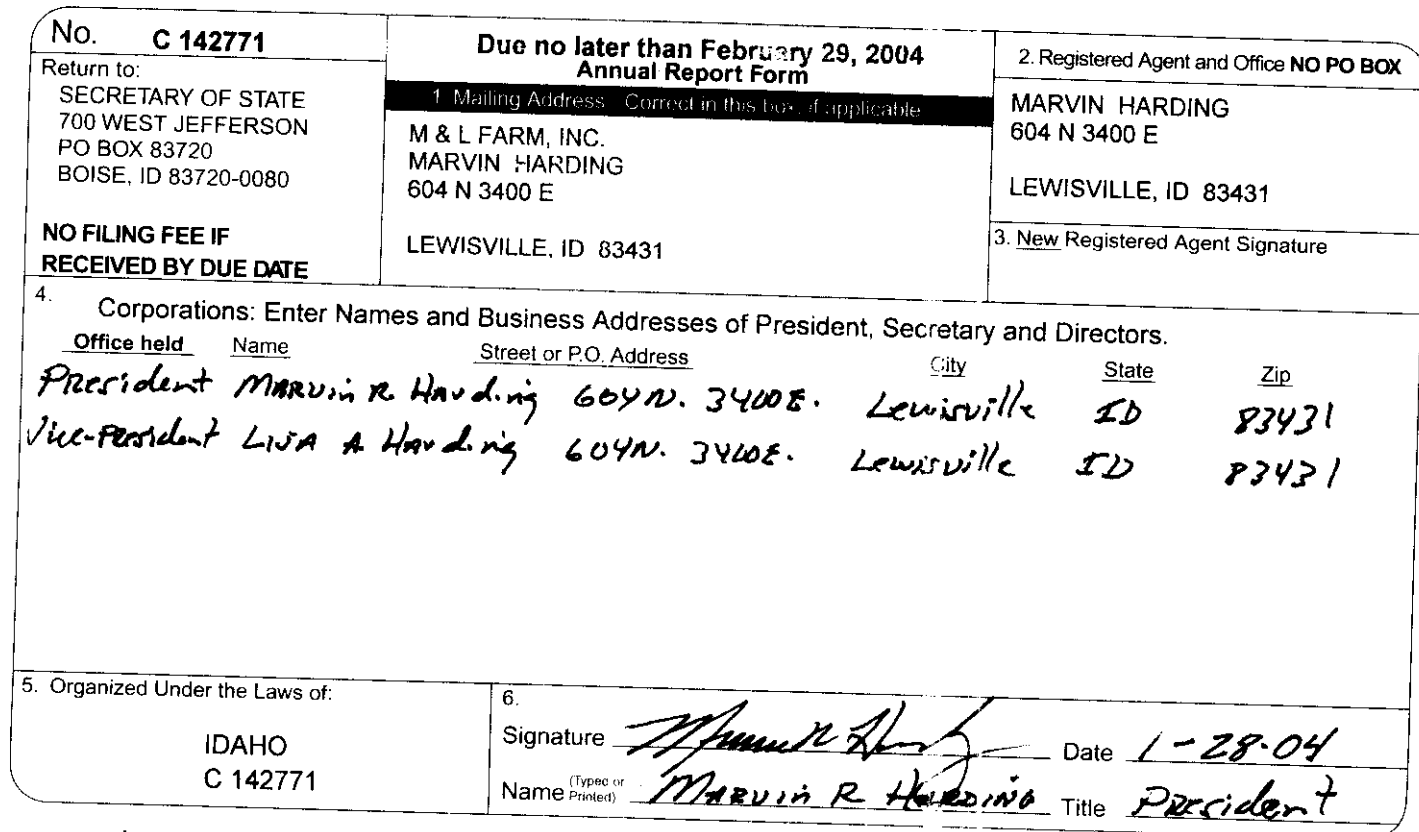 No. C 142771
Return to:
SECRETARY OF STATE
700 WEST JEFFERSON
PO BOX 83720
BOISE, ID 83720-0080
NO FILING FEE IF
RECEIVED BY DUE DATE
Due no later than February 29, 2004
Annual Report Form
1 Mailing Address Correct in this box, if applicable
M & L FARM, INC.
MARVIN HARDING
604 N 3400 E
LEWISVILLE, ID 83431
2. Registered Agent and Office NO PO BOX
MARVIN HARDING
604 N 3400 E
LEWISVILLE, ID 83431
3. New Registered Agent Signature
4. Corporations: Enter Names and Business Addresses of President, Secretary and Directors.
Office held Name Street or P.O. Address City State Zip
President MARVIN R. Harding 604 N. 3400 E. Lewisville ID 83431
Vice-President LISA A Harding 604 N. 3400 E. Lewisville ID 83431
5. Organized Under the Laws of:
IDAHO
C 142771
6.
Signature Date 1-28-04
Name (Typed or Printed) MARVIN R HARDING Title President